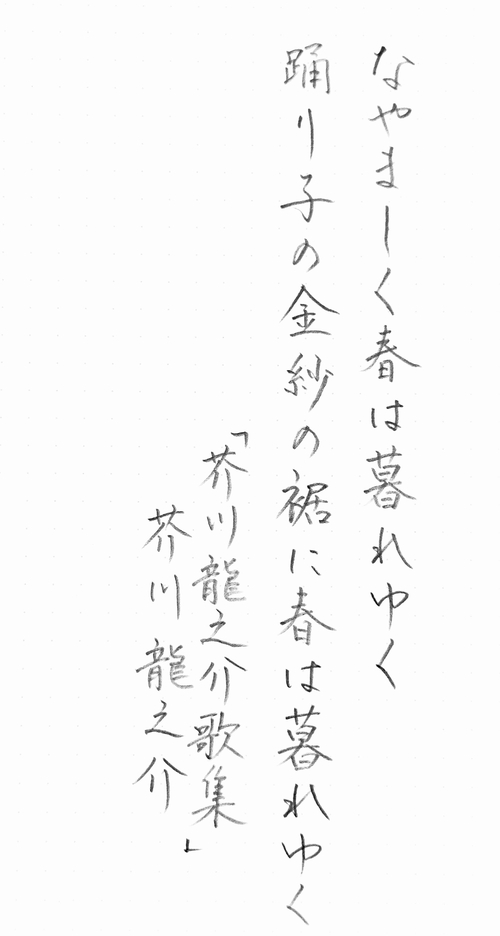 なやましく春は暮れゆく
踊り子の金紗の裾に春は暮れゆく
「芥川龍之介歌集」
芥川龍之介